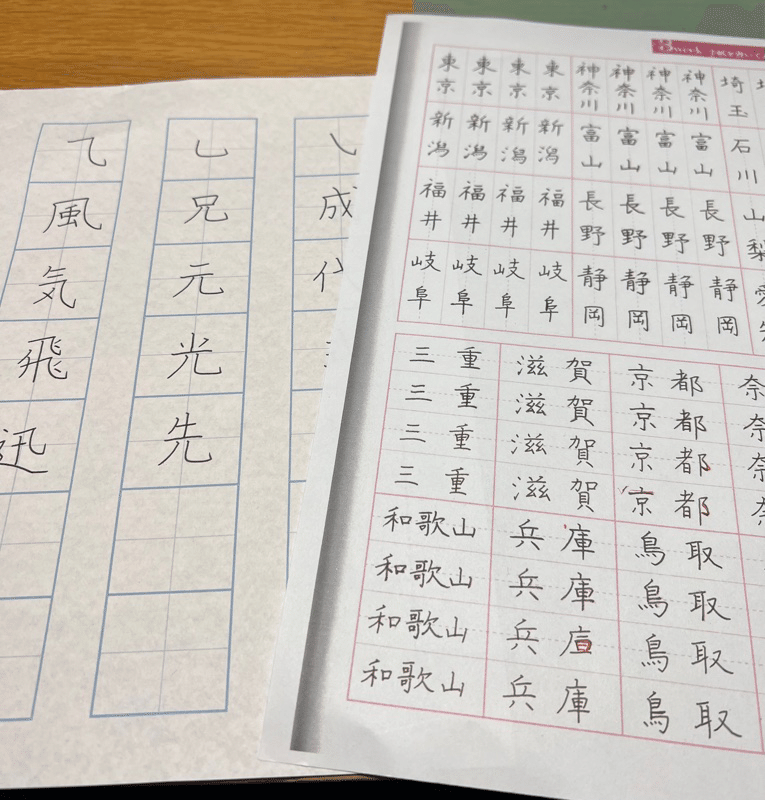 成
乚
兄
元
光
先
⺄
風
気
飛
迅
3 week
東京 東京 東京 東京 神奈川 神奈川 神奈川 神奈川 埼玉
新潟 新潟 新潟 新潟 富山 富山 富山 富山 石川
福井 福井 福井 福井 長野 長野 長野 長野 山梨
岐阜 岐阜 岐阜 岐阜 静岡 静岡 静岡 静岡
三重 滋賀 京都 奈
三重 滋賀 京都 奈
三重 滋賀 京都 奈
三重 滋賀 京都 奈
和歌山 兵庫 鳥取
和歌山 兵庫 鳥取
和歌山 兵庫 鳥取
和歌山 兵庫 鳥取